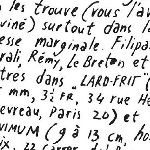 les trouve (vous l'av
viné) surtout dans la
esse marginale. Filipa
rali, Rémy, Le Breton et
tres dans "LARD-FRIT" (
mm, 3½ FR, 34 rue H
evreau, Paris 20) et
NIMUM (9 à 13 cm, ho